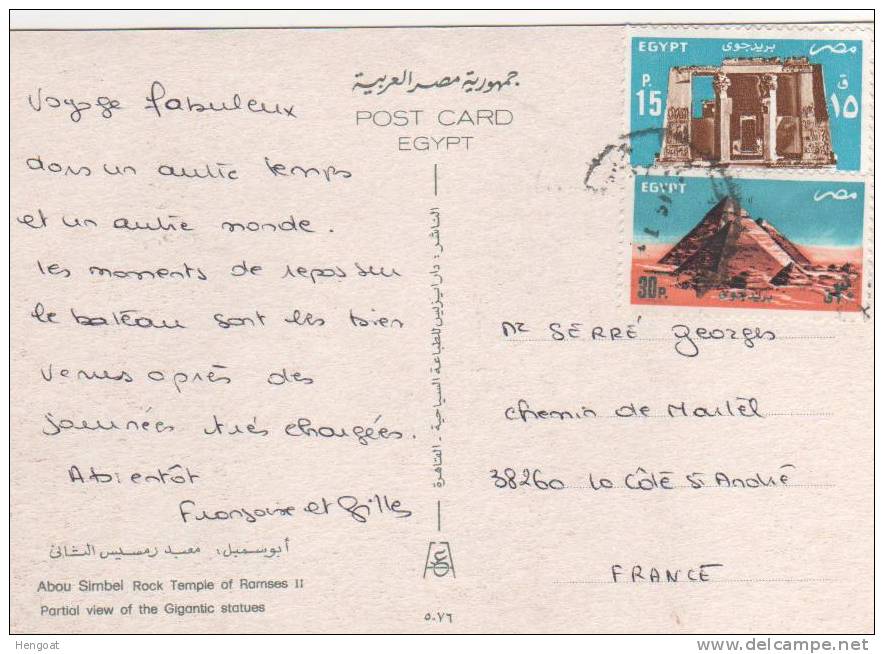 جمهورية مصر العربية
POST CARD
EGYPT
Voyage fabuleux
dans un autre temps
et un autre monde.
les moments de repos sur
le bateau sont les bien
venus après des
journées très chargées.
A bientôt
Françoise et Gilles
أبوسمبل: معبد رمسيس الثانى
Abou Simbel Rock Temple of Ramses II
Partial view of the Gigantic statues
الناشر: دار ايزيس للطباعة السياحية - القاهرة
٥٠٧٦
EGYPT بريد جوى مصر
P. ق
15 ١٥
EGYPT مصر
30P. بريد جوى
Mr SERRÉ Georges
Chemin de Martel
38260 La Côte St André
FRANCE
Hengoat
www.delcampe.net